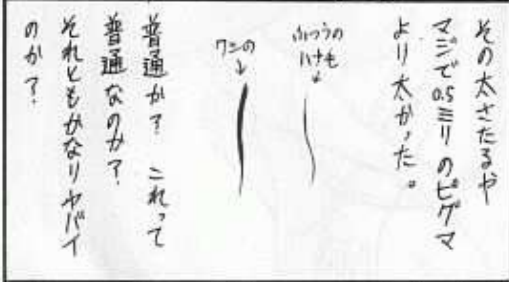 その太さたるや
マジで0.5ミリのピグマ
より太かった。
ふつうの
ハナモ
↓
ワニの
↓
普通か？ これって
普通なのか？
それともかなりヤバイ
のか？